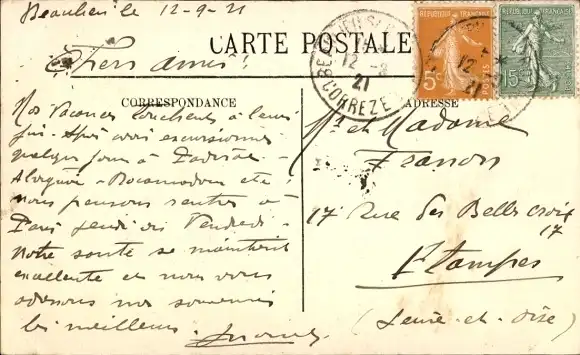 Beaulieu le 12-9-21
CARTE POSTALE
Chers amis!
CORRESPONDANCE
ADRESSE
Nos vacances touchent à leur
fin. Après avoir excursionné
quelques jours à Padirac -
- Rocamadour etc.
nous pensons rentrer à
Paris jeudi ou Vendredi -
Notre santé se maintient
excellente et nous vous
adressons nos souvenirs
les meilleurs.
Mr et Madame
17 Rue des Belles Croix
17
Etampes
(Seine-et-Oise)
CORREZE
12-9
21
REPUBLIQUE FRANÇAISE
5c
POSTES
REPUBLIQUE FRANÇAISE
15c
12
21